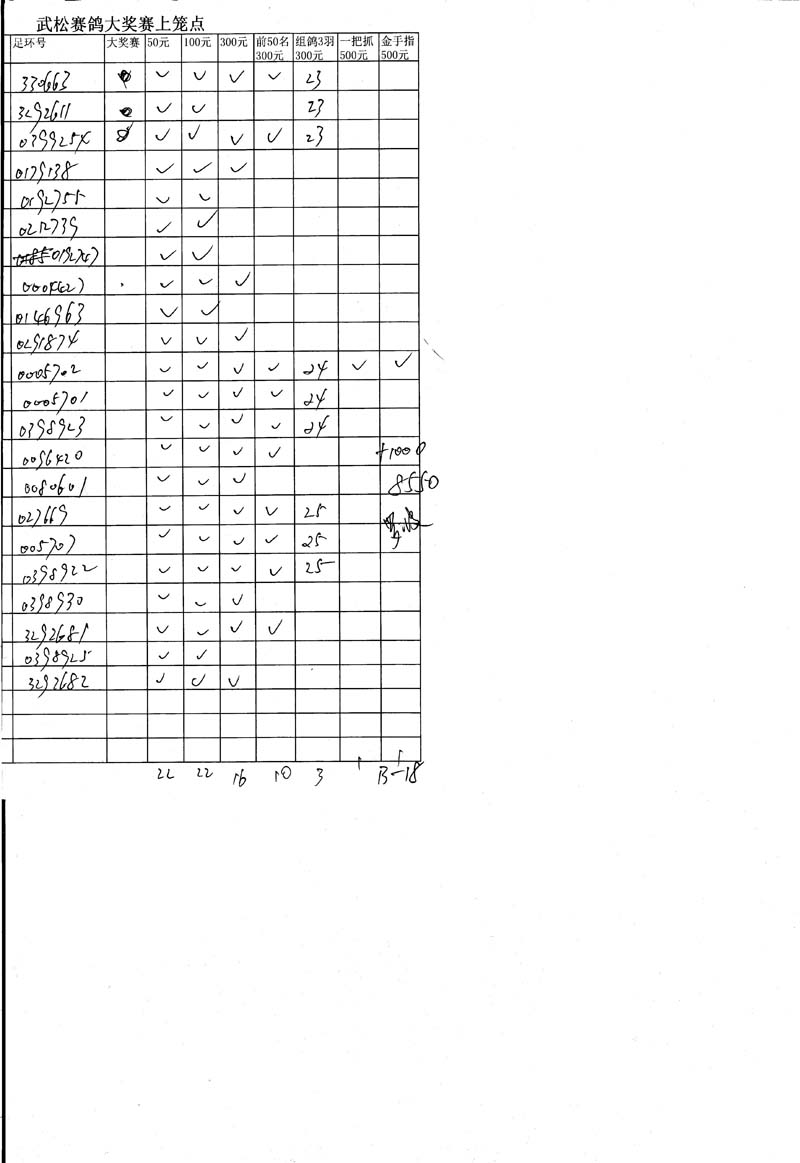 武松赛鸽大奖赛上笼点
足环号 大奖赛 50元 100元 300元 前50名300元 组鸽3羽300元 一把抓500元 金手指500元
330663 ✓ ✓ ✓ ✓ 23
3292611 ✓ ✓ 23
0399254 ✓ ✓ ✓ ✓ 23
0179138 ✓ ✓ ✓
0192755 ✓ ✓
0212739 ✓ ✓
✓ ✓
✓ ✓ ✓
0146963 ✓ ✓
0291874 ✓ ✓ ✓
0005702 ✓ ✓ ✓ ✓ 24 ✓ ✓
0005701 ✓ ✓ ✓ ✓ 24
0398923 ✓ ✓ ✓ ✓ 24
0096420 ✓ ✓ ✓ ✓ +1000
0080601 ✓ ✓ ✓ 8550
027669 ✓ ✓ ✓ ✓ 25
005707 ✓ ✓ ✓ ✓ 25
0398922 ✓ ✓ ✓ ✓ 25
0398930 ✓ ✓ ✓
3292681 ✓ ✓ ✓ ✓
0398925 ✓ ✓
3292682 ✓ ✓ ✓
22 22 16 10 3 1 1
B-18